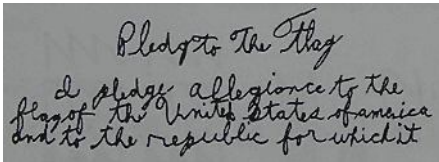 Pledg to The Flag
I pledge allegiance to the
flag of th United States of america
and to the republic for which it